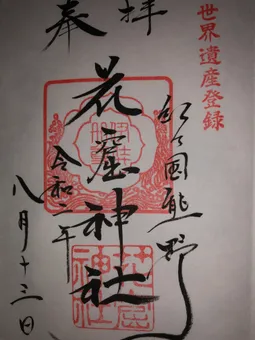 世界遺産登録
奉拝
紀の国熊野
花窟神社
令和二年
八月十三日
花窟
神社